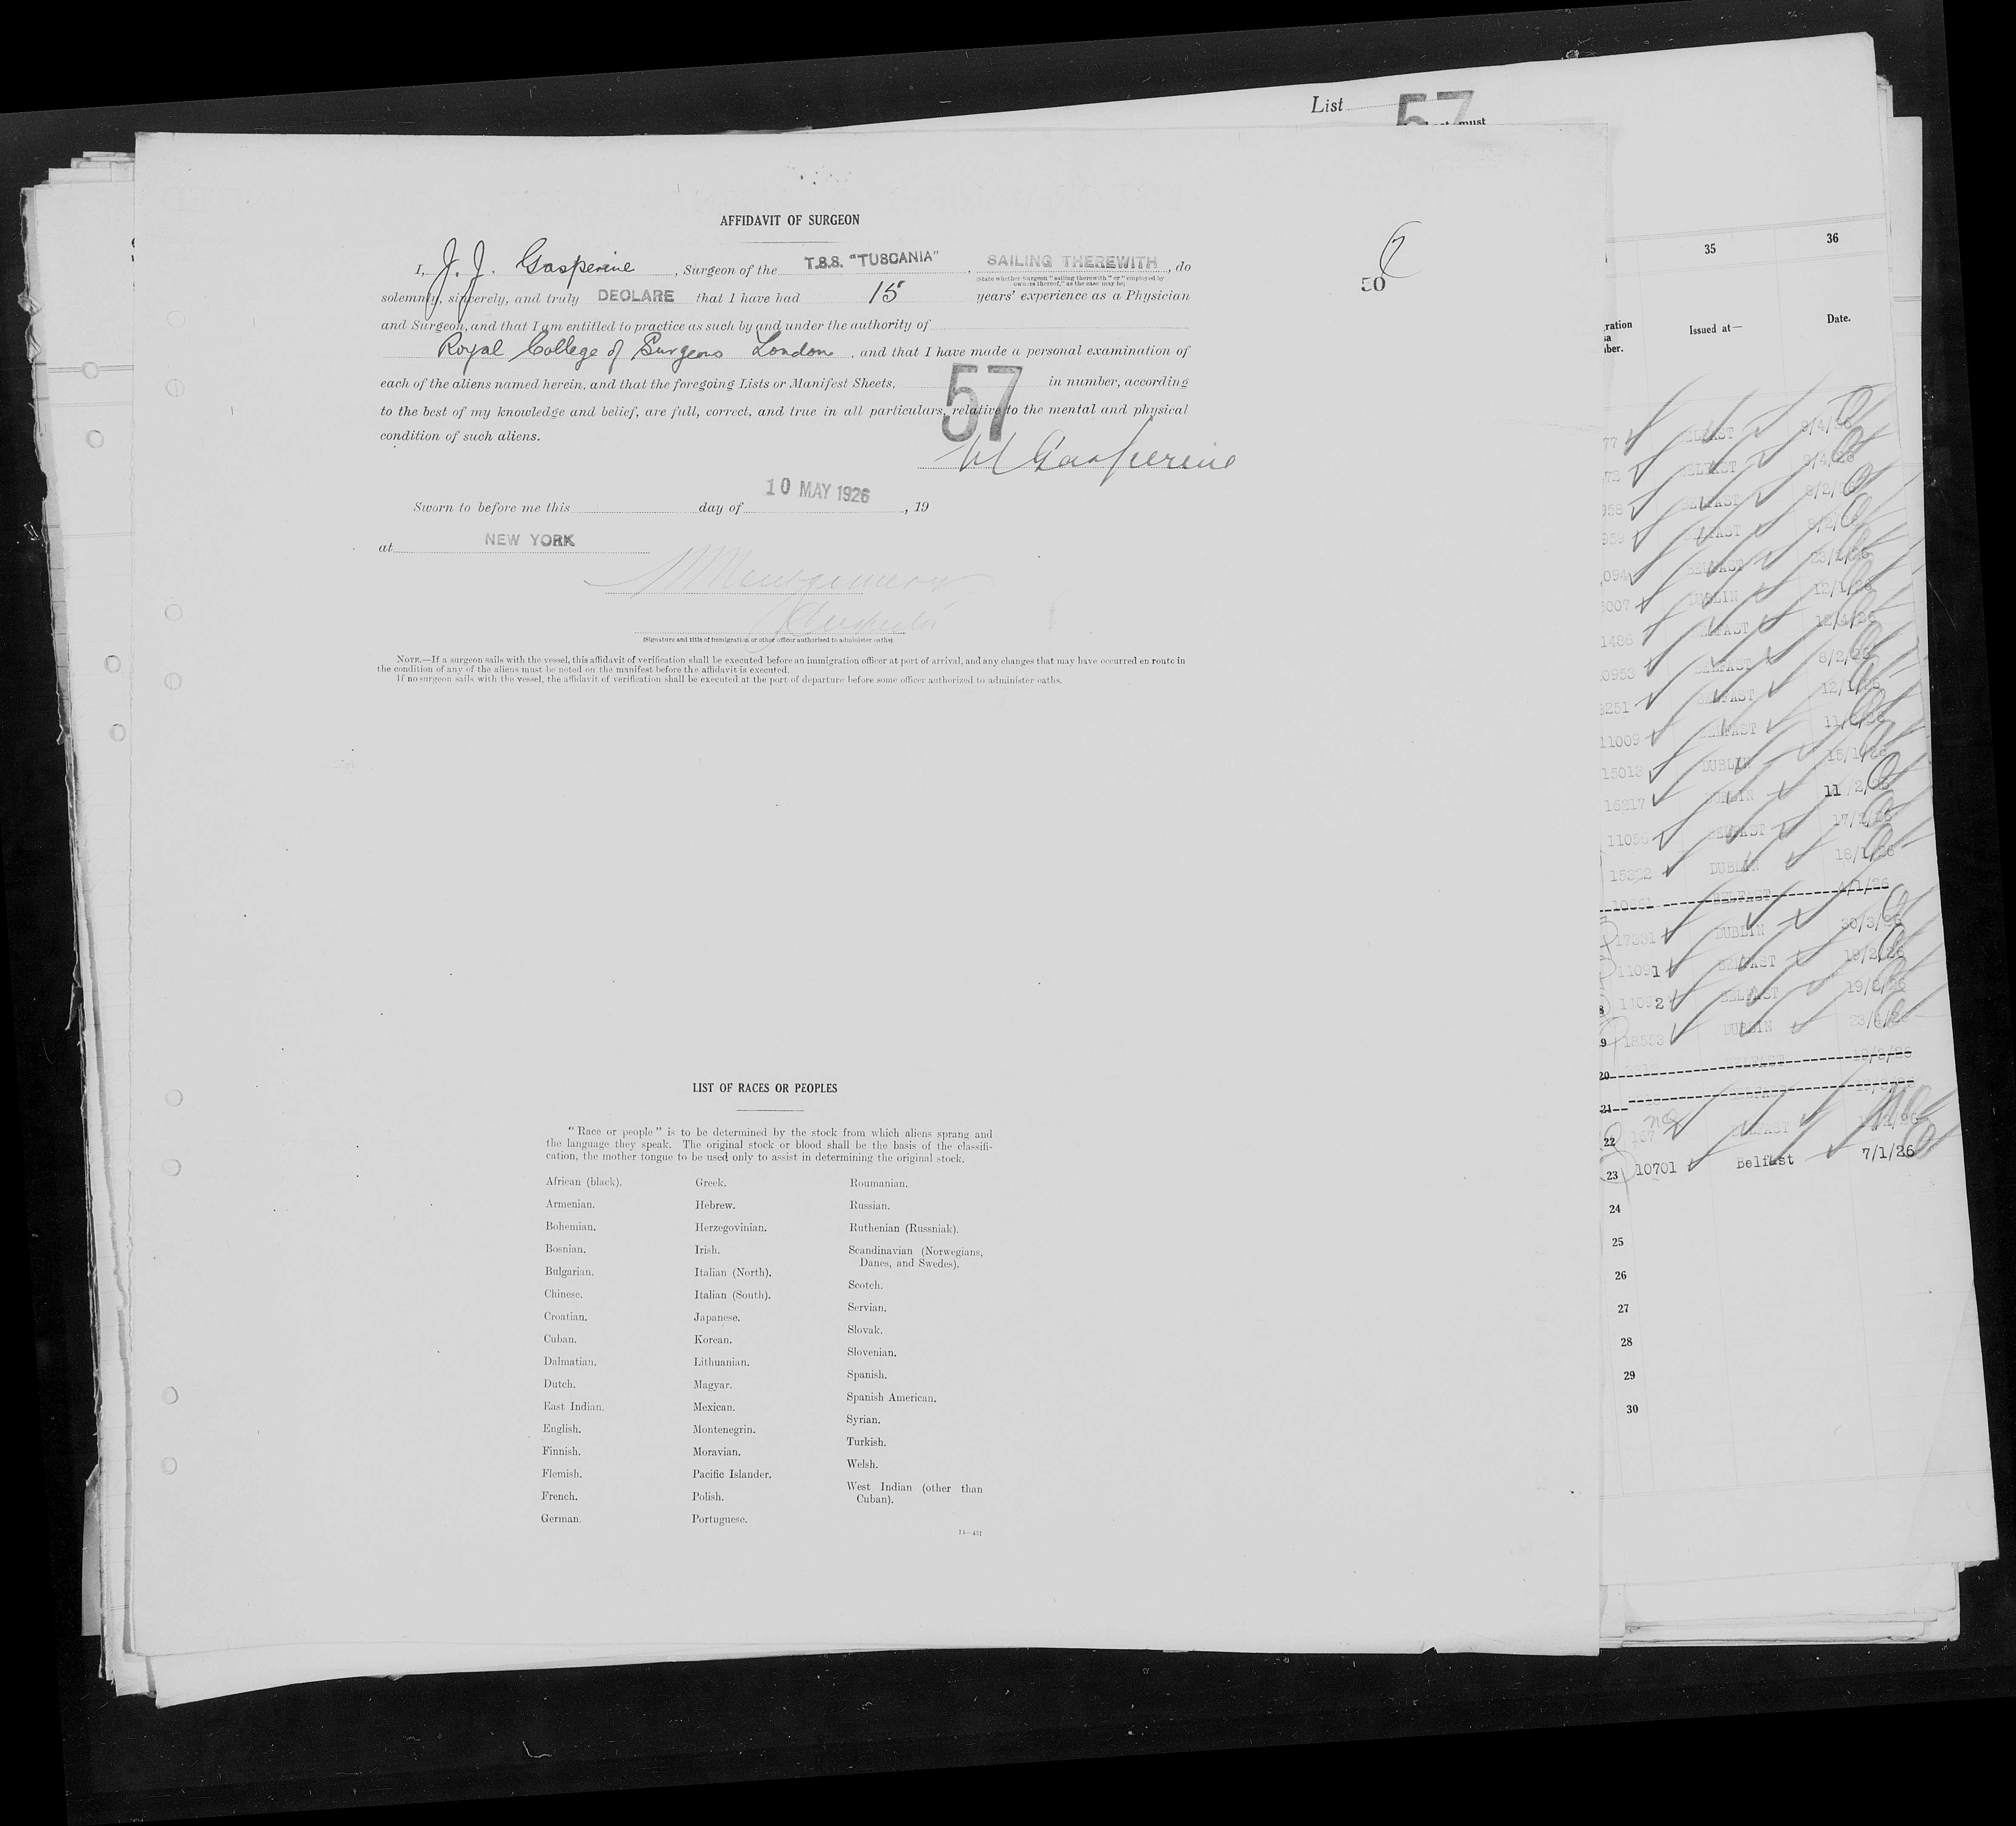 List 57
must
AFFIDAVIT OF SURGEON
I, J. J. Gasperine, Surgeon of the T.S.S. "TUSCANIA", SAILING THEREWITH, do
(State whether Surgeon "sailing therewith" or "employed by
owners thereof," as the case may be)
50
solemnly, sincerely, and truly DECLARE that I have had 15 years' experience as a Physician
and Surgeon, and that I am entitled to practice as such by and under the authority of
Royal College of Surgeons London, and that I have made a personal examination of
each of the aliens named herein, and that the foregoing Lists or Manifest Sheets, 57 in number, according
to the best of my knowledge and belief, are full, correct, and true in all particulars, relative to the mental and physical
condition of such aliens.
Gasperine
Sworn to before me this day of 10 MAY 1926, 19
at NEW YORK
Montgomery
(Signature and title of immigration or other officer authorised to administer oaths)
NOTE.—If a surgeon sails with the vessel, this affidavit of verification shall be executed before an immigration officer at port of arrival, and any changes that may have occurred en route in
the condition of any of the aliens must be noted on the manifest before the affidavit is executed.
If no surgeon sails with the vessel, the affidavit of verification shall be executed at the port of departure before some officer authorized to administer oaths.
LIST OF RACES OR PEOPLES
"Race or people" is to be determined by the stock from which aliens sprang and
the language they speak. The original stock or blood shall be the basis of the classifi-
cation, the mother tongue to be used only to assist in determining the original stock.
African (black).
Armenian.
Bohemian.
Bosnian.
Bulgarian.
Chinese.
Croatian.
Cuban.
Dalmatian.
Dutch.
East Indian.
English.
Finnish.
Flemish.
French.
German.
Greek.
Hebrew.
Herzegovinian.
Irish.
Italian (North).
Italian (South).
Japanese.
Korean.
Lithuanian.
Magyar.
Mexican.
Montenegrin.
Moravian.
Pacific Islander.
Polish.
Portuguese.
Roumanian.
Russian.
Ruthenian (Russniak).
Scandinavian (Norwegians,
Danes, and Swedes).
Scotch.
Servian.
Slovak.
Slovenian.
Spanish.
Spanish American.
Syrian.
Turkish.
Welsh.
West Indian (other than
Cuban).
35 36
Issued at— Date.
77 BELFAST 9/4/26
72 BELFAST 9/4/26
958 BELFAST 8/2/26
959 BELFAST 8/2/26
094 BELFAST 23/2/26
007 DUBLIN 12/1/26
1486 BELFAST 12/4/26
0953 BELFAST 8/2/26
251 BELFAST 12/1/26
11009 BELFAST
15013 DUBLIN 15/1/26
16217 DUBLIN 11/2/26
11056 BELFAST 17/2/26
15322 DUBLIN 18/1/26
BELFAST 4/1/26
17331 DUBLIN 30/3/26
11091 BELFAST 19/2/26
11092 BELFAST 19/2/26
19 18553 DUBLIN
20 BELFAST
21 BELFAST
22 BELFAST
23 10701 Belfast 7/1/26
24
25
26
27
28
29
30